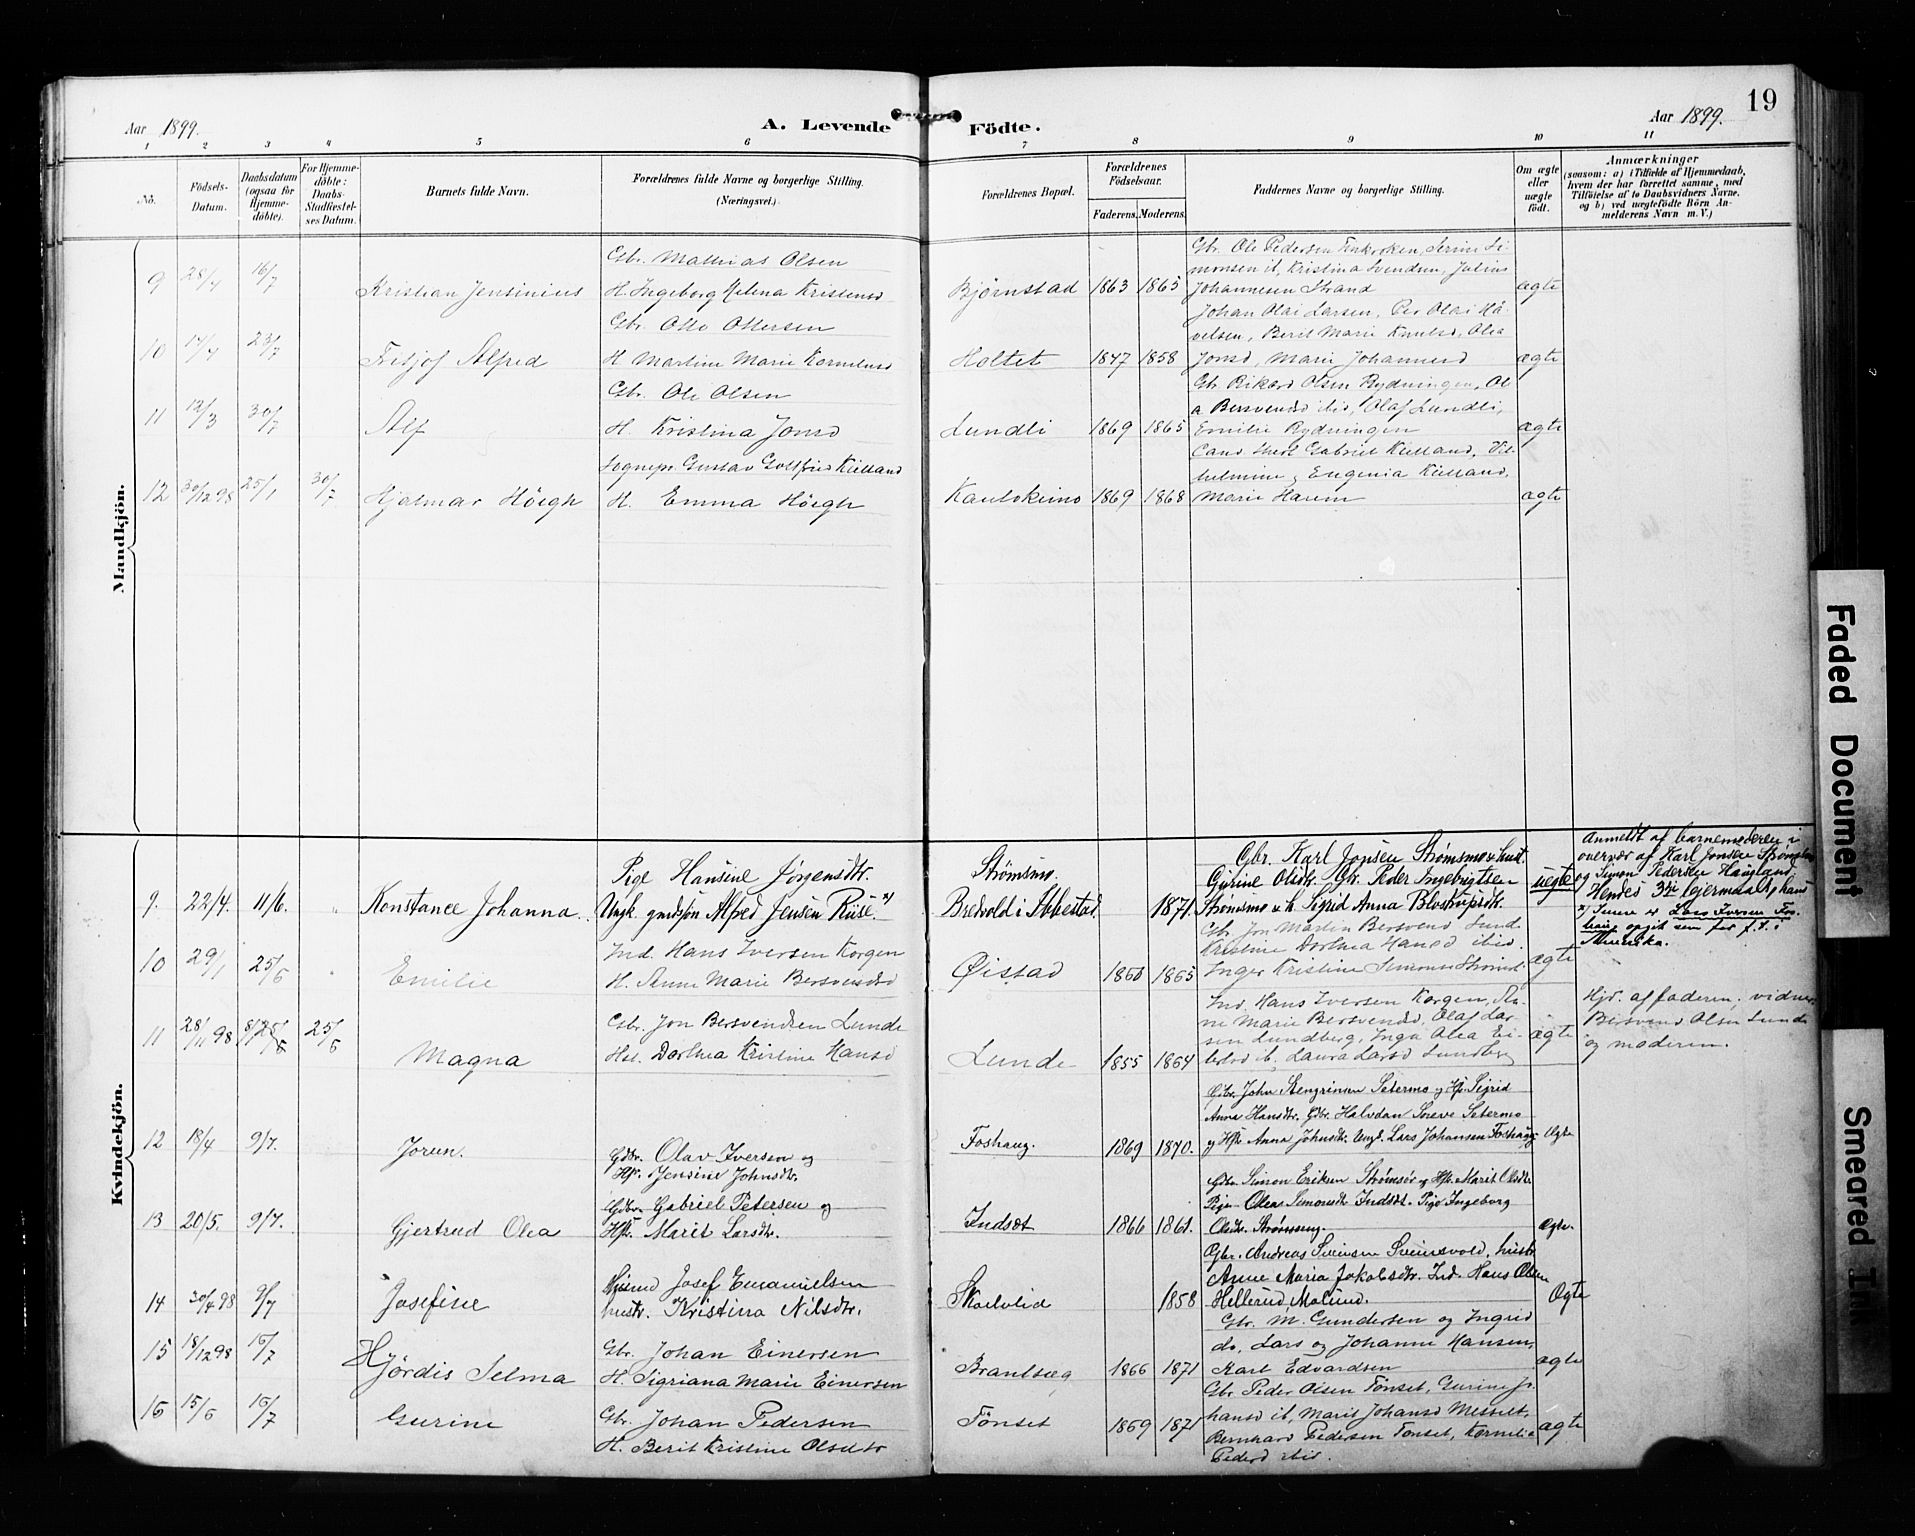 19
Aar 1899.
A. Levende Födte.
Aar 1899.
1 2 3 4 5 6 7 8 9 10 11
No.
Födsels-Datum.
Daabsdatum (ogsaa for Hjemme-döbte).
For Hjemme-döbte: Daabs-Stadfæstelses Datum.
Barnets fulde Navn.
Forældrenes fulde Navne og borgerlige Stilling. (Næringsvei.)
Forældrenes Bopæl.
Forældrenes Födselsaar.
Faderens. Moderens.
Faddernes Navne og borgerlige Stilling.
Om ægte eller uægte födt.
Anmærkninger
(saasom: a) i Tilfælde af Hjemmedaab, hvem der har forrettet samme, med Tilföielse af to Daabsvidners Navne, og b) ved uægtefödte Börn Anmelderens Navn m. V.)
Mandkjön.
Gbr. Mathias Olsen
Gbr. Ole Pedersen
monsen ib, Kristina Svendsen, Julius
9 28/4 16/7 Kristian Jensinius H. Ingeborg Helena Kristensd Björnstad 1863 1865 Johannesen Strand ægte
Gbr. Otto Ottersen
Johan Olai Larsen, Per Olai Hå-
velsen, Berit Marie Knutsd, Olia
10 14/4 23/7 Fritjof Alfred H. Martine Marie Kornelusd Holtet 1847 1858 Jonsd, Marie Johannesd ægte
Gbr. Ole Olsen
Gbr. Rikard Olsen Rydningen, Ol-
a Bersvendsd ibid, Olaf Lundli,
11 12/3 30/7 Alf H. Kristina Jonsd Lundli 1869 1865 Emilie Rydningen ægte
Sognepr. Gustav Gottfried Kielland
Cand. theol. Gabriel Kielland, Vil-
helmine, Eugenia Kielland,
12 30/12 98 25/1 30/7 Hjalmar Höegh H. Emma Höegh Kautokeino 1869 1868 Marie Harem ægte
Kvindekjön.
Pige Hansine Jörgensdtr. Strömsmo. Gbr. Karl Jonsen Strömsmo & hust.
Gurine Olsdtr. Gbr. Peder Ingebrigtsen
9. 22/4. 11/6. Konstance Johanna. Ungk. gmdsøn Alfred Jensen Riise. x) Bredvold i Ibbestad. 1871. Strömsmo & h. Sigrid Anna Blostrupsdtr. uægte
Anmeldt af barnemoderen i
overvær af Karl Jonsen Strömsmo
og Simon Pedersen Haugland,
Hendes 3die leiermaal, hans
x) Senere er Lars Iversen Fos-
haug opgit som far p. t. i
Amerika.
Ind. Hans Iversen Korgen
Gbr. Jon Martin Bersvend Lund
Kristine Dorthea Hansd ibid.
10 29/1 25/6 Emilie H. Anne Marie Bersvendsd Øistad 1860 1865 Inger Kristine Simonsen Strömsl. ægte
Gbr. Jon Bersvendsen Lunde
Ind. Hans Iversen Korgen, An-
ne Marie Bersvendsd, Olaf Lar-
sen Lundberg, Inga Olea Ei-
11 28/11 98 25/6 Magna Hst. Dorthea Kristine Hansd Lunde 1855 1864 ib, Laura Larsd Lundberg ægte
Hjd. af faderen; vidner
Bersvend Olsen Lunde
og moderen.
Gbr. John Stengrimsen Setermo og Hst. Sigrid
Anna Hansdtr. Gdbr. Halvdan Setermo
12 18/4 9/7. Jorun. Gdbr. Olav Iversen og Foshaug. 1869 1870. og Hst. Anna Johnsdtr. Ungk. Lars Johansen Foshaug. Ægte
Hst. Jensine Johnsdtr.
Gdbr. Simon Eriksen Strömsör og Hst. Marit Olsdtr.
Gdbr. Gabriel Petersen og
Pige Olea Simonsdtr. Indsæt. Pige Ingeborg
13 20/5. 9/7. Gjertrud Olea Hst. Marit Larsdtr. Indsæt 1866 1861. Olsdtr. Strömseng. Ægte.
Gbr. Andreas Sveinsen Sveinsvold, hustr.
Josef Emanuelsen
Anne Maria Jakobsdtr. Ind. Hans Olsen
14 30/4 98 9/7 Josefine hustr. Kristina Nilsdtr. Skoelvlid 1858 Hellerud, Molund. Ægte
Gbr. M. Gundersen og Ingrid
15 18/12 98 16/7 Gbr. Johan Einersen do, Lars og Johanne Hansen,
Hjördis Selma H. Sigriana Marie Einersen Brantsæg 1866 1871 Karl Edvardsen ægte
Gbr. Peder Olsen Tönset, Gurine Jo-
16 15/6 16/7 Gurine Gbr. Johan Pedersen Tönset 1869 1871 hansd ib, Marit Johansd Messelt, ægte
Bernhard Pedersen Tönset, Kornelie
H. Berit Kristine Olsdtr
Pedersd ibid.
Faded Document
Smeared Ink